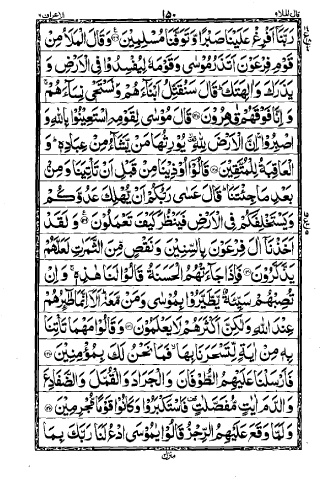 قال الملا ٩ ١٥٠ الاعراف ٧
رَبَّنَآ اَفْرِغْ عَلَيْنَا صَبْرًا وَّ تَوَفَّنَا مُسْلِمِيْنَ ﴿۱۲۶﴾ وَقَالَ الْمَلَاُ مِنْ
قَوْمِ فِرْعَوْنَ اَتَذَرُ مُوْسٰى وَقَوْمَهٗ لِيُفْسِدُوْا فِى الْاَرْضِ وَ
يَذَرَكَ وَاٰلِهَتَكَ ؕ قَالَ سَنُقَتِّلُ اَبْنَآءَهُمْ وَنَسْتَحْىٖ نِسَآءَهُمْ ۚ
وَاِنَّا فَوْقَهُمْ قٰهِرُوْنَ ﴿۱۲۷﴾ قَالَ مُوْسٰى لِقَوْمِهِ اسْتَعِيْنُوْا بِاللّٰهِ وَ
اصْبِرُوْا ۚ اِنَّ الْاَرْضَ لِلّٰهِ ۟ۙ يُوْرِثُهَا مَنْ يَّشَآءُ مِنْ عِبَادِهٖ ؕ وَ
الْعَاقِبَةُ لِلْمُتَّقِيْنَ ﴿۱۲۸﴾ قَالُوْۤا اُوْذِيْنَا مِنْ قَبْلِ اَنْ تَاْتِيَنَا وَ مِنْۢ
بَعْدِ مَا جِئْتَنَا ؕ قَالَ عَسٰى رَبُّكُمْ اَنْ يُّهْلِكَ عَدُوَّكُمْ
وَيَسْتَخْلِفَكُمْ فِى الْاَرْضِ فَيَنْظُرَ كَيْفَ تَعْمَلُوْنَ ﴿۱۲۹﴾ وَلَقَدْ
اَخَذْنَاۤ اٰلَ فِرْعَوْنَ بِالسِّنِيْنَ وَنَقْصٍ مِّنَ الثَّمَرٰتِ لَعَلَّهُمْ
يَذَّكَّرُوْنَ ﴿۱۳۰﴾ فَاِذَا جَآءَتْهُمُ الْحَسَنَةُ قَالُوْا لَنَا هٰذِهٖ ۚ وَاِنْ
تُصِبْهُمْ سَيِّئَةٌ يَّطَّيَّرُوْا بِمُوْسٰى وَمَنْ مَّعَهٗ ؕ اَلَاۤ اِنَّمَا طٰٓئِرُهُمْ
عِنْدَ اللّٰهِ وَلٰكِنَّ اَكْثَرَهُمْ لَا يَعْلَمُوْنَ ﴿۱۳۱﴾ وَقَالُوْا مَهْمَا تَاْتِنَا
بِهٖ مِنْ اٰيَةٍ لِّتَسْحَرَنَا بِهَا ۙ فَمَا نَحْنُ لَكَ بِمُؤْمِنِيْنَ ﴿۱۳۲﴾
فَاَرْسَلْنَا عَلَيْهِمُ الطُّوْفَانَ وَالْجَرَادَ وَالْقُمَّلَ وَالضَّفَادِعَ
وَالدَّمَ اٰيٰتٍ مُّفَصَّلٰتٍ ۟ فَاسْتَكْبَرُوْا وَكَانُوْا قَوْمًا مُّجْرِمِيْنَ ﴿۱۳۳﴾
وَلَمَّا وَقَعَ عَلَيْهِمُ الرِّجْزُ قَالُوْا يٰمُوْسَى ادْعُ لَنَا رَبَّكَ بِمَا
منزل